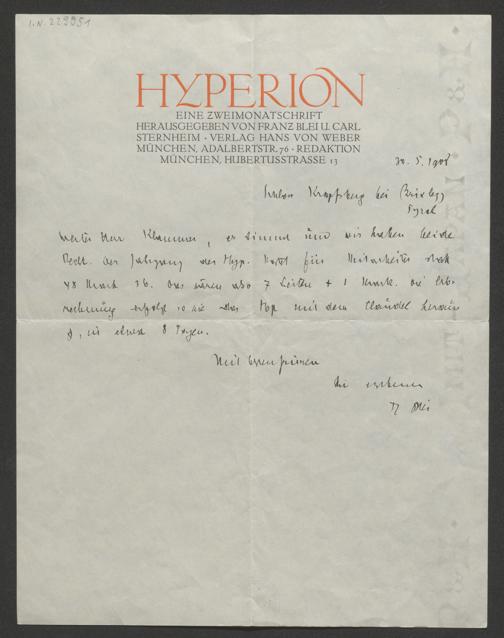 I.N. 229951
HYPERION
EINE ZWEIMONATSCHRIFT
HERAUSGEGEBEN VON FRANZ BLEI U. CARL
STERNHEIM · VERLAG HANS VON WEBER
MÜNCHEN, ADALBERTSTR. 76 · REDAKTION
MÜNCHEN, HUBERTUSSTRASSE 13
30. 5. 1908
bei Brixlegg
Tyrol
Werter Herr, es stimmt und wir haben beide
Recht. Der Jahrgang des Hyp. kostet für Mitarbeiter statt
48 Mark 36. Das wären also 7 Seiten + 1 Mark. Die
erfolgt mit dem Claudel
8 Tagen.
Mit
Ihr ergebener
F Blei